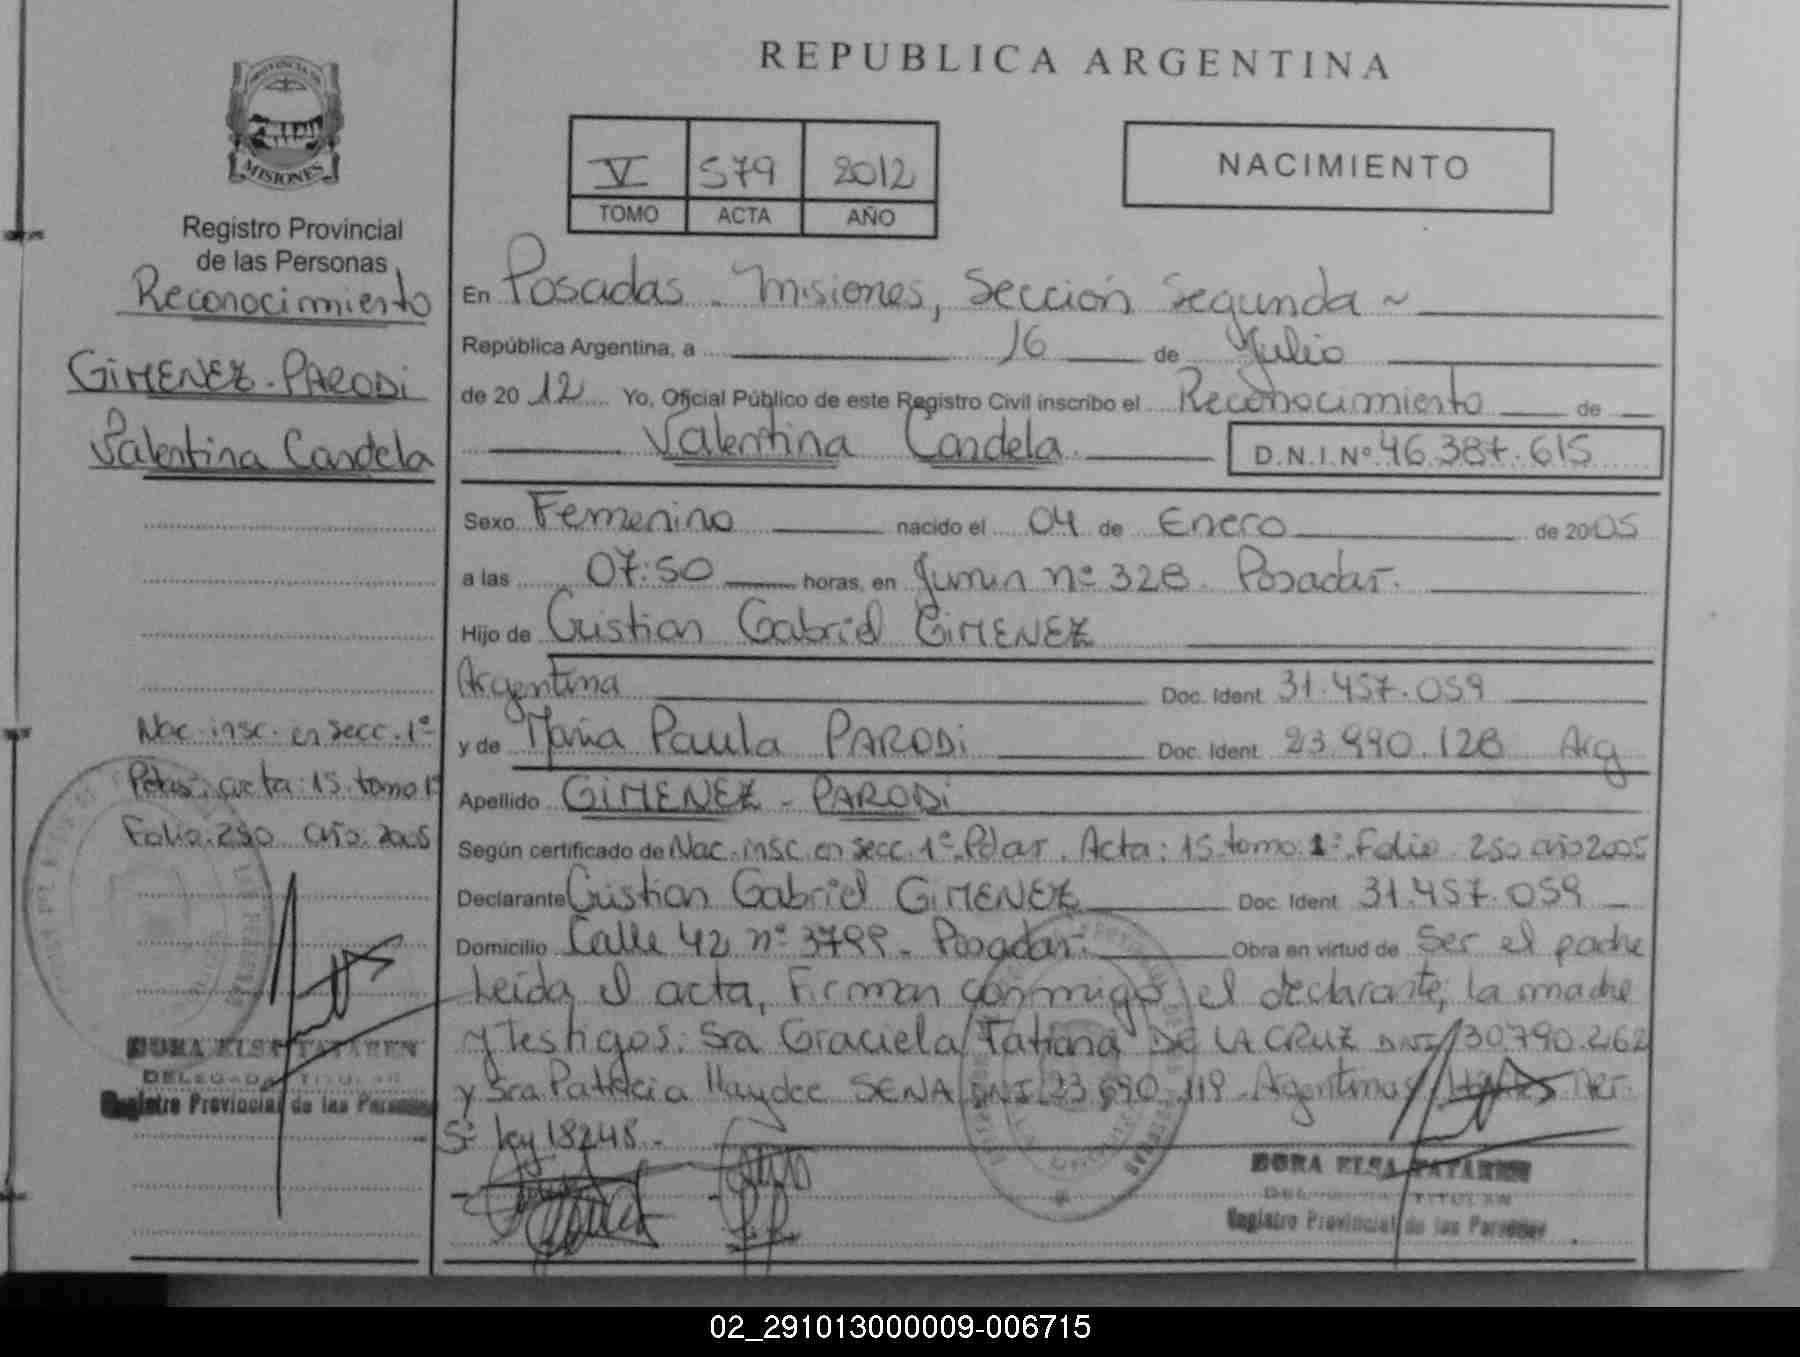 REPUBLICA ARGENTINA
PROVINCIA DE
MISIONES
Registro Provincial
de las Personas
Reconocimiento
GIMENEZ - PARODI
Valentina Candela
Nac. insc. en secc. 1º
Pdas. acta: 15. tomo 1º
Folio. 250 año. 2005
DORA ELSA TATAREN
DELEGADA TITULAR
Registro Provincial de las Personas
V 579 2012
TOMO ACTA AÑO
NACIMIENTO
En Posadas - Misiones, Sección Segunda ~
República Argentina, a 16 de Julio
de 2012 Yo, Oficial Público de este Registro Civil inscribo el Reconocimiento de
Valentina Candela D.N.I. Nº 46.387.615
Sexo Femenino nacido el 04 de Enero de 2005
a las 07:50 horas, en Junin nº 328. Posadas.
Hijo de Cristian Gabriel GIMENEZ
Argentina Doc. Ident. 31.457.059
y de Maria Paula PARODI Doc. Ident. 23.990.128 Arg
Apellido GIMENEZ - PARODI
Según certificado de Nac. insc. en secc. 1º. Pdas. Acta: 15. tomo 1º. Folio 250 año 2005
Declarante Cristian Gabriel GIMENEZ Doc. Ident. 31.457.059
Domicilio Calle 42 nº 3799 - Posadas. Obra en virtud de ser el padre
Leída el acta, Firman conmigo, el declarante, la madre
y testigos: Sra Graciela Tatiana DE LA CRUZ DNI 30.790.262
y Sra Patricia Haydee SENA DNI 23.690.119 - Argentinas
5º ley 18248.-
DORA ELSA TATAREN
DELEGADA TITULAR
Registro Provincial de las Personas
02_291013000009-006715